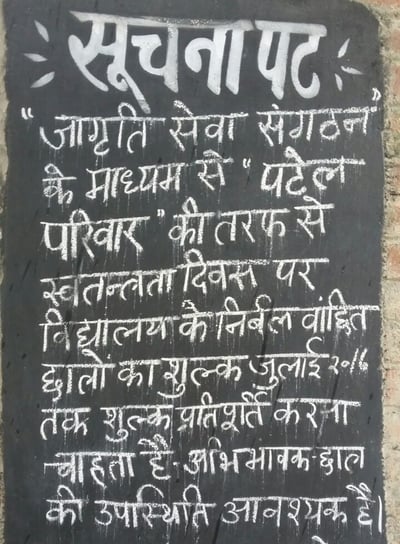 सूचना पट
"जागृति सेवा संगठन"
के माध्यम से "पटेल
परिवार" की तरफ से
स्वतन्त्रता दिवस पर
विद्यालय के निर्बल वांछित
छात्रों का शुल्क जुलाई २०१६
तक शुल्क प्रतिपूर्ति करना
चाहता है. अभिभावक-छात्र
की उपस्थिति आवश्यक है।